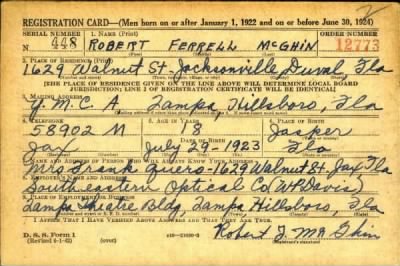 REGISTRATION CARD—(Men born on or after January 1, 1922 and on or before June 30, 1924)
SERIAL NUMBER 1. NAME (Print) ORDER NUMBER
448 ROBERT FERRELL McGHIN 12773
2. PLACE OF RESIDENCE (Print)
1629 Walnut St. Jacksonville Duval Fla
[THE PLACE OF RESIDENCE GIVEN ON THE LINE ABOVE WILL DETERMINE LOCAL BOARD
JURISDICTION; LINE 2 OF REGISTRATION CERTIFICATE WILL BE IDENTICAL]
3. MAILING ADDRESS
Y.M.C.A Tampa Hillsboro, Fla
4. TELEPHONE 5. AGE IN YEARS 6. PLACE OF BIRTH
58902 M 18 Jasper
DATE OF BIRTH
Jax July 29-1923 Fla
7. NAME AND ADDRESS OF PERSON WHO WILL ALWAYS KNOW YOUR ADDRESS
Mrs Frank 1629 Walnut St. Jax Fla
8. EMPLOYER'S NAME AND ADDRESS
Southeastern Optical Co (W.P. Davis)
Tampa Theatre Bldg, Tampa Hillsboro, Fla
I AFFIRM THAT I HAVE VERIFIED ABOVE ANSWERS AND THAT THEY ARE TRUE.
D. S. S. Form 1
(Revised 6-1-42) (over) Robert F. McGhin